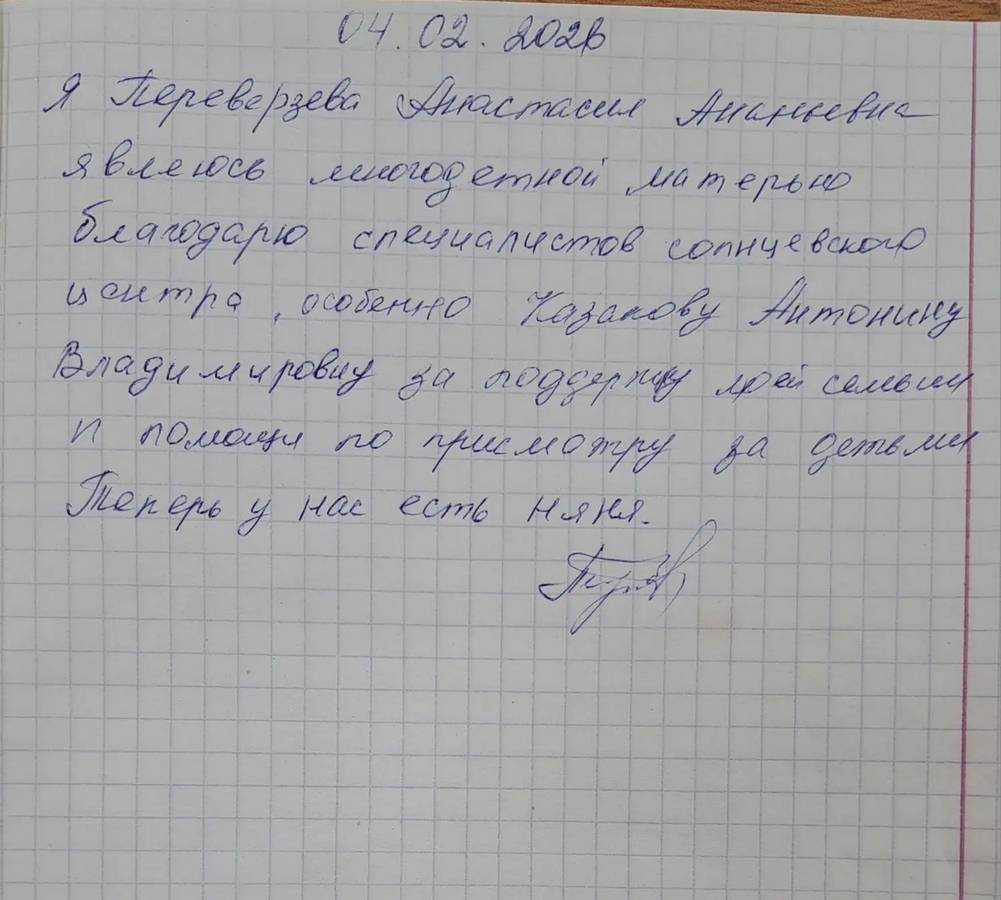 04.02.2026
Я Переверзева Анастасия Ананьевна
являюсь многодетной матерью
благодарю специалистов солнцевского
центра, особенно Казакову Антонину
Владимировну за поддержку моей семьи
и помощи по присмотру за детьми
Теперь у нас есть няня.